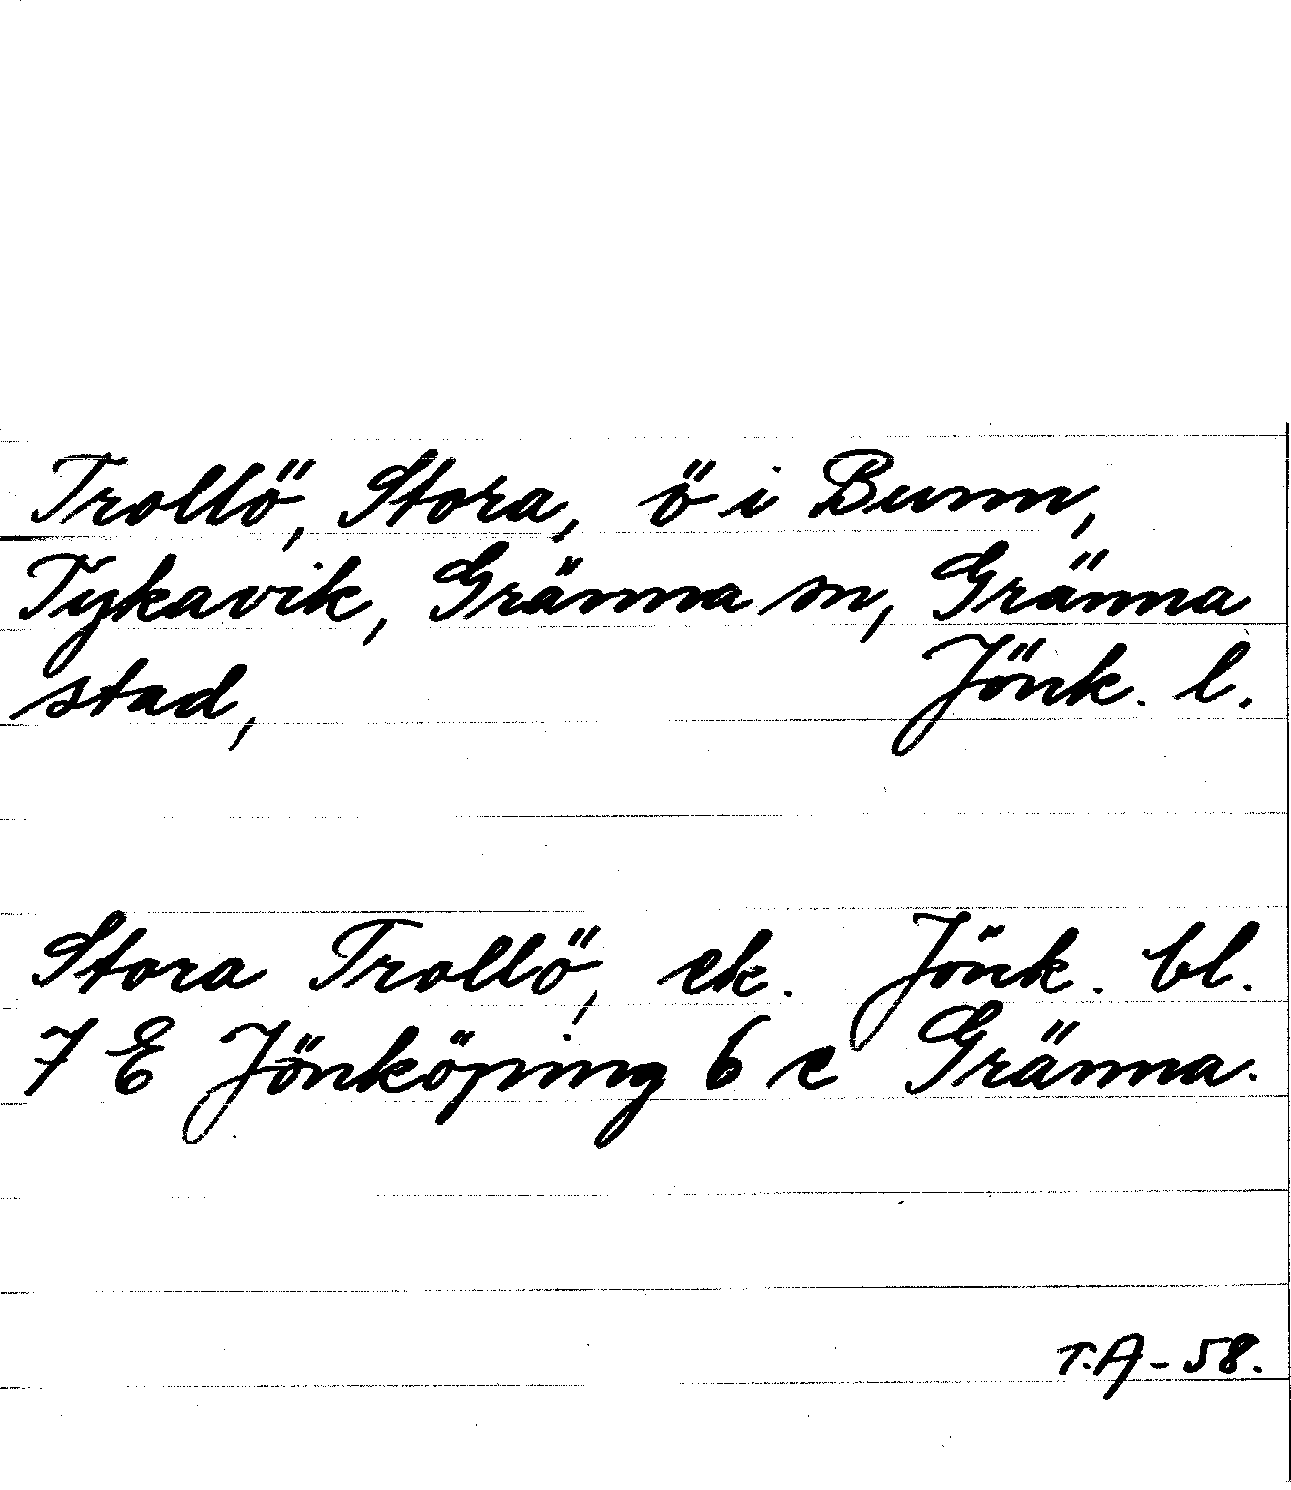 Trollö, Stora, ö i Bunn,
Tykavik, Gränna sn, Gränna
stad, Jönk. l.
Stora Trollö, ek. Jönk. bl.
7 E Jönköping 6 e Gränna.
T.A-58.